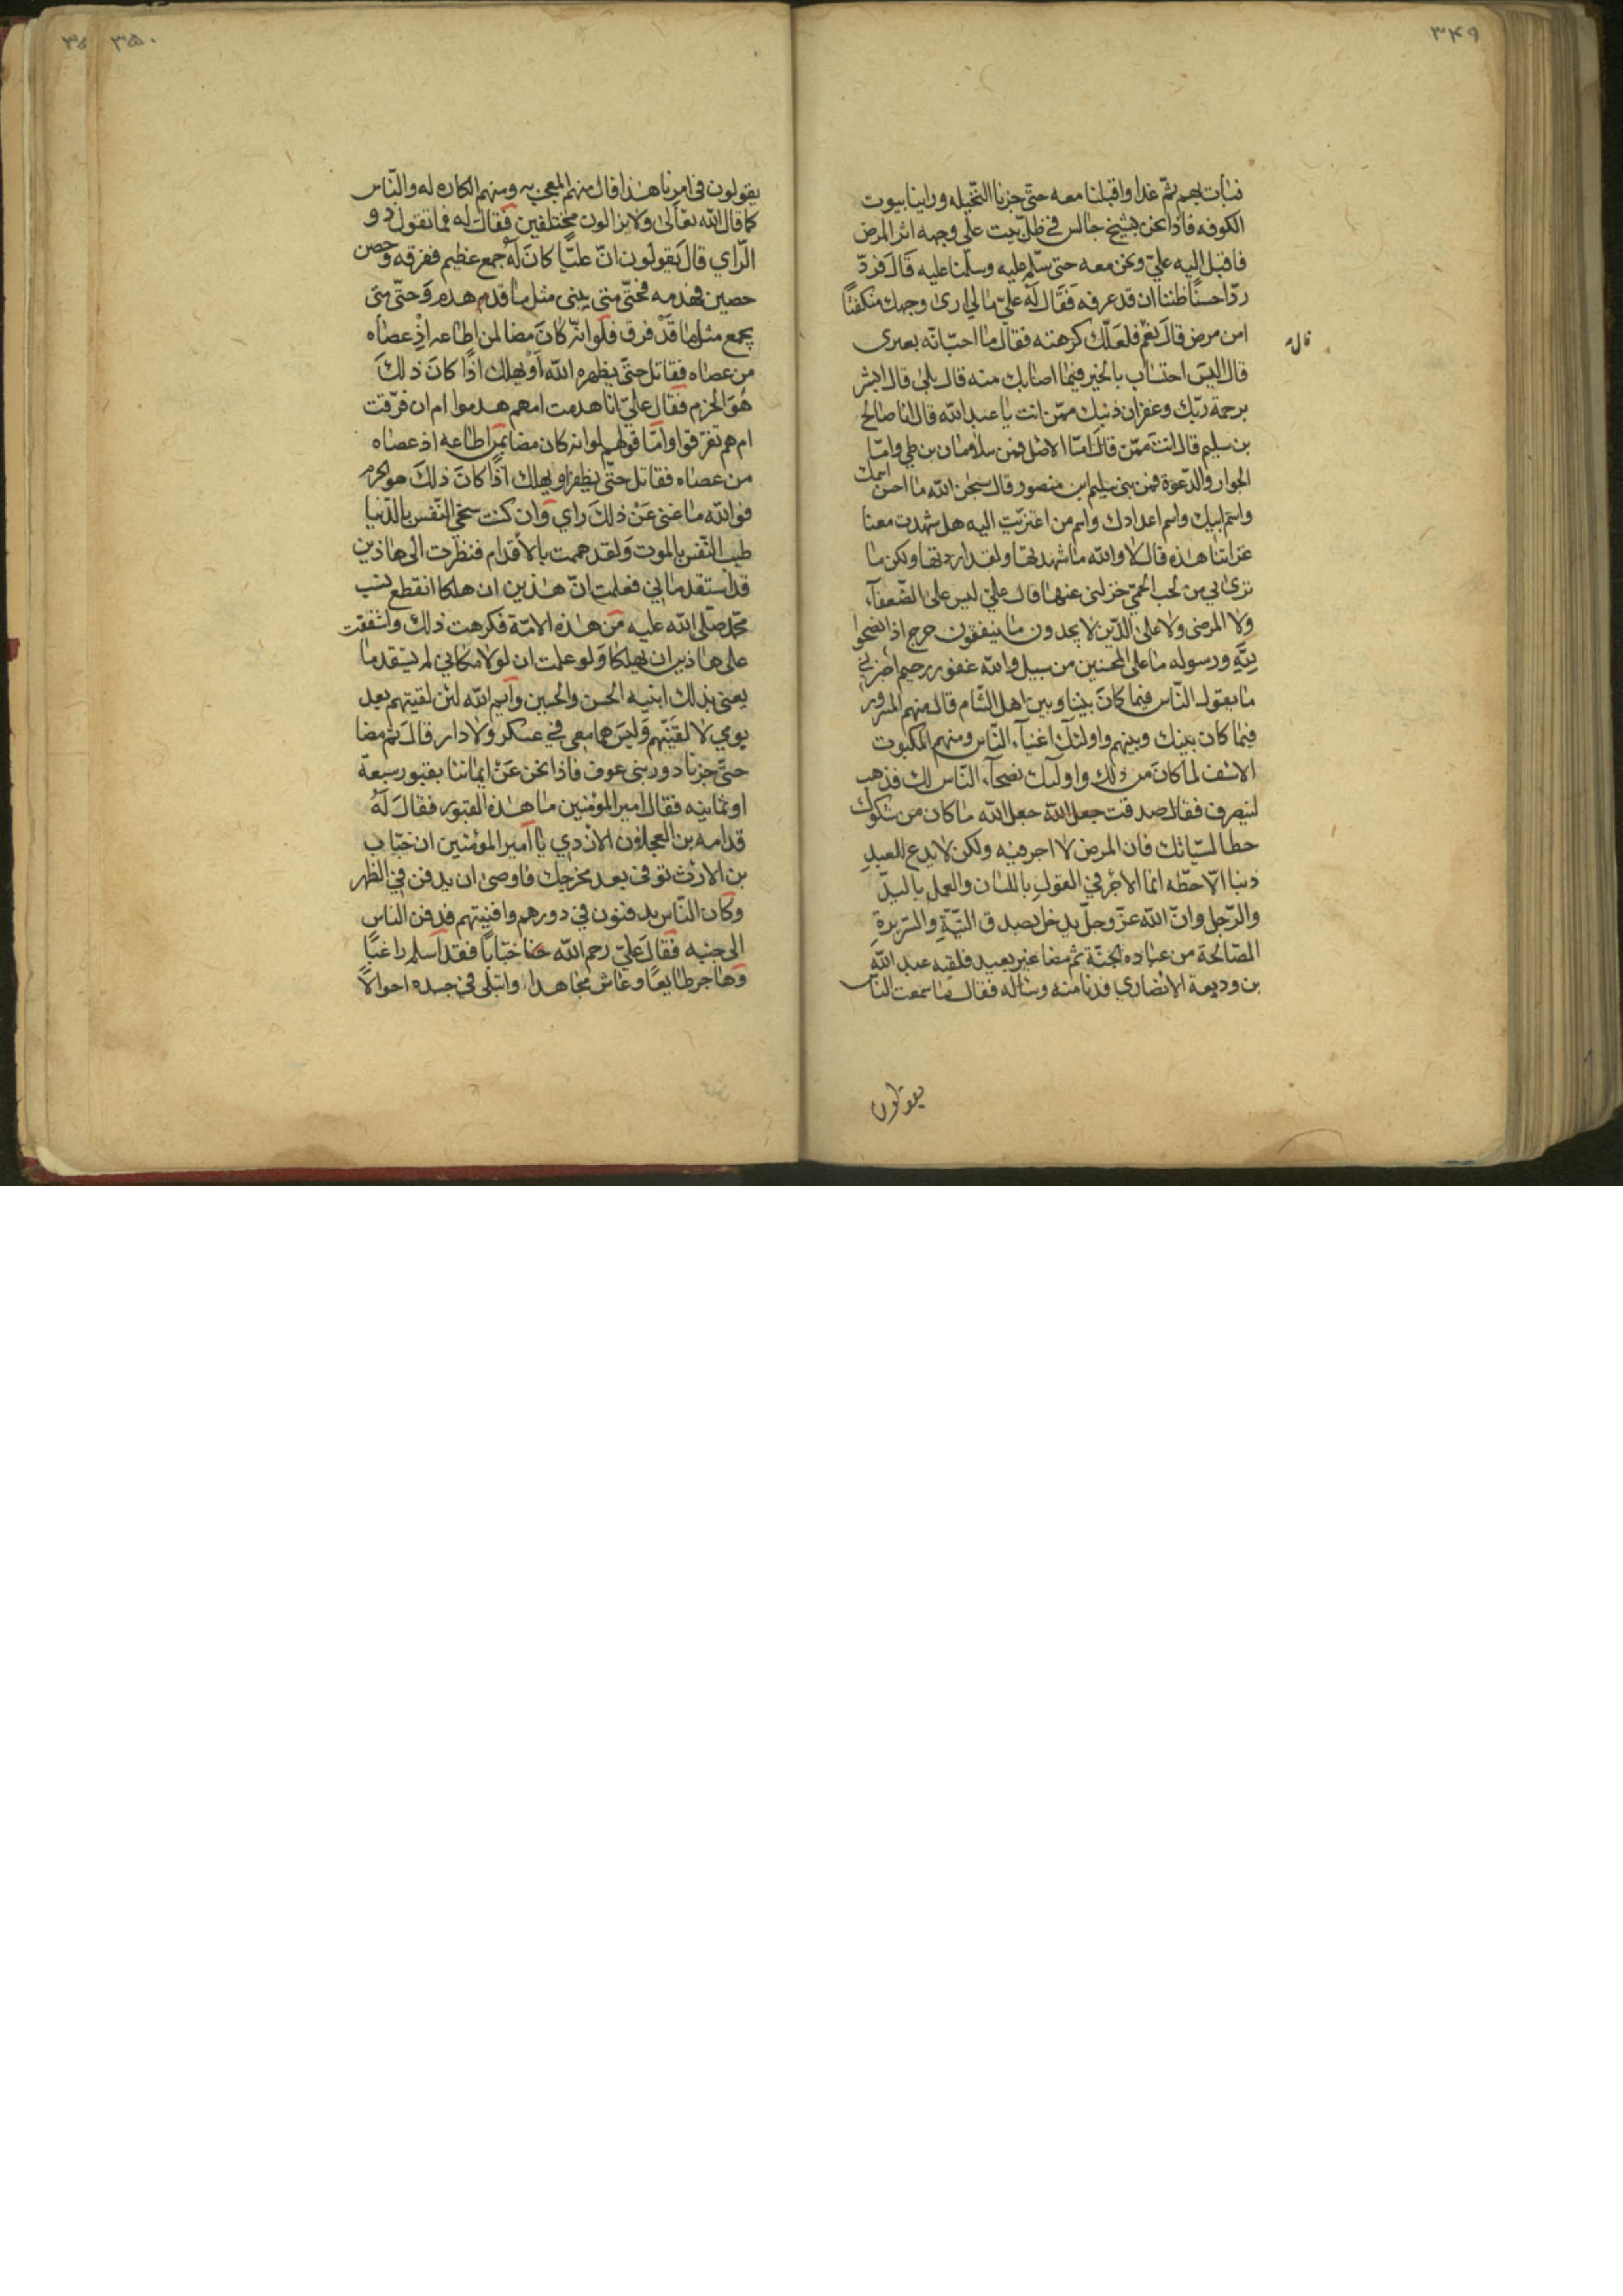 ٣٤٩
فبات بهم ثمّ غدا واقبلنا معه حتّى جزنا النّخيله وراينا بيوت
الكوفه فاذا نحن بشيخ جالس فى ظلّ بيت على وجهه اثر المرض
فاقبل اليه عليّ ونحن معه حتى سلّم عليه وسلّمنا عليه قال فردّ
ردّا حسنًا ظننا ان قد عرفه فقال له عليّ ما لي ارى وجهك منكفئًا
امن مرض قال نعم فلعلّك كرهته فقال ما احبّ انّه بعيرى
قال
قال اليس احتساب بالخير فيما اصابك منه قال بلى قال ابشر
برحمة ربّك وغفران ذنبك ممّن انت يا عبد الله قال انا صالح
بن سليم قال انت ممّن قال امّا الاصل فمن سلامان بن طي وامّا
الجوار والدّعوة فمن بنى سليم ابن منصور قال سبحن الله ما احسن اسمك
واسم ابيك واسم اعدادك واسم من اعتزيت اليه هل شهدت معنا
غزاتنا هذه قال لا والله ما شهدتها ولقد اردتها ولكن ما
ترى بي من لحب الحمّي خزلنى عنها قال عليّ ليس على الضّعفآء
ولا المرضى ولا على الّذين لا يجدون ما ينفقون حرج اذا نصحوا
لله ورسوله ما على المحسنين من سبيل والله غفور رحيم اخبرني
ما يقول النّاس فيما كان بيننا وبين اهل الشّام قال منهم المسرور
فيما كان بينك وبينهم واولئك اغنيآء النّاس ومنهم المكبوت
الاسف لما كان من ذلك واولئك نصحآء النّاس لك فذهب
لينصرف فقال صدقت جعل الله جعل الله ما كان من شكوك
حطا لسيّاتك فان المرض لا اجر فيه ولكن لا يدع العبد
ذنبا الّا حطّه انما الاجر في القول باللسان والعمل باليدّ
والرّجل وانّ الله عزّ وجلّ يدخل بصدق النيّة والسّريرة
الصّالحة من عباده الجنّة ثم مضا غير بعيد فلقيه عبد الله
بن وديعة الانصاري فدنا منه وساله فقال ما سمعت النّاس
يقولون
٣٥٠
يقولون فى امرنا هذا قال منهم المعجب به ومنهم الكاره له والنّاس
كما قال الله تعالى ولا يزالون مختلفين فقال له فما تقول ذو
الرّاي قال يقولون انّ عليّا كان له جمع عظيم ففرقه وحصن
حصين فهدمه فحتّى متى يبنى مثل ما قد هدم وحتّى متى
يجمع مثل ما قد فرق فلو انّه كان مضا لمن اطاعه اذ عصاه
من عصاه فقاتل حتّى يظهره الله او يهلك اذًا كان ذلك
هو الحزم فقال عليّ انا هدمت ام هم هدموا ام ان فرّقت
ام هم تفرّقوا وامّا قولهم لو انه كان مضا بمن اطاعه اذ عصاه
من عصاه فقاتل حتّى يظفر او يهلك اذًا كان ذلك هو الحزم
فوالله ما غنى عن ذلك راي وان كنت سخيّ النّفس بالدّنيا
طيب النّفس بالموت ولقد هممت بالأقدام فنظرت الى هاذين
قد استقدماني فعلمت انّ هذين ان هلكا انقطع نسب
محمّد صلّى الله عليه من هذه الامّة فكرهت ذلك واشفقت
على هاذين ان يهلكا ولو علمت ان لولا مكاني لم يستقدما
يعنى بذلك ابنيه الحسن والحسين وايم الله لئن لقيتهم بعد
يومي لا لقينّهم وليس هما معي في عسكر ولا دار قال ثم مضا
حتّى جزنا دور بنى عوف فاذا نحن عن ايماننا بقبور سبعة
او ثمانيه فقال امير المؤمنين ما هذه القبور فقال له
قدامه بن العجلان الازدي يا امير المؤمنين ان خبّاب
بن الارتّ توفى بعد مخرجك فاوصى ان يدفن في الظهر
وكان النّاس يدفنون في دورهم وافنيتهم فدفن الناس
الى جنبه فقال عليّ رحم الله خبّابًا فقد اسلم راغبًا
وهاجر طايعًا وعاش مجاهدا وابتلى في جسده احوالًا